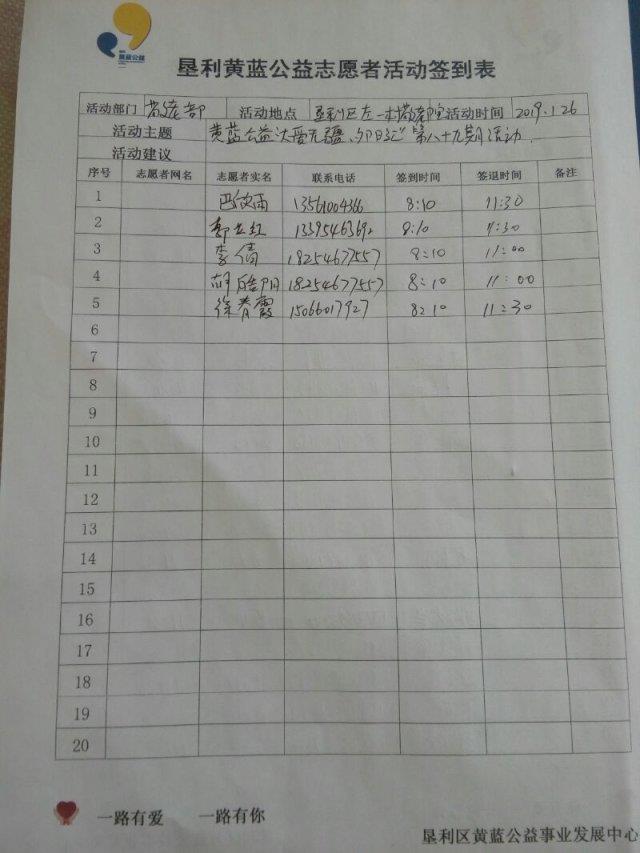 黄蓝公益
垦利黄蓝公益志愿者活动签到表
活动部门 敬老部 活动地点 垦利区 敬老院 活动时间 2019.1.26
活动主题 黄蓝公益大爱无疆 夕阳 第八十九期活动
活动建议
序号 志愿者网名 志愿者实名 联系电话 签到时间 签退时间 备注
1 8:10 11:30
2 8:10 11:30
3 李倩 18254677557 8:10 11:00
4 18254677557 8:10 11:00
5 徐春霞 15066017927 8:10 11:30
6
7
8
9
10
11
12
13
14
15
16
17
18
19
20
一路有爱 一路有你
垦利区黄蓝公益事业发展中心